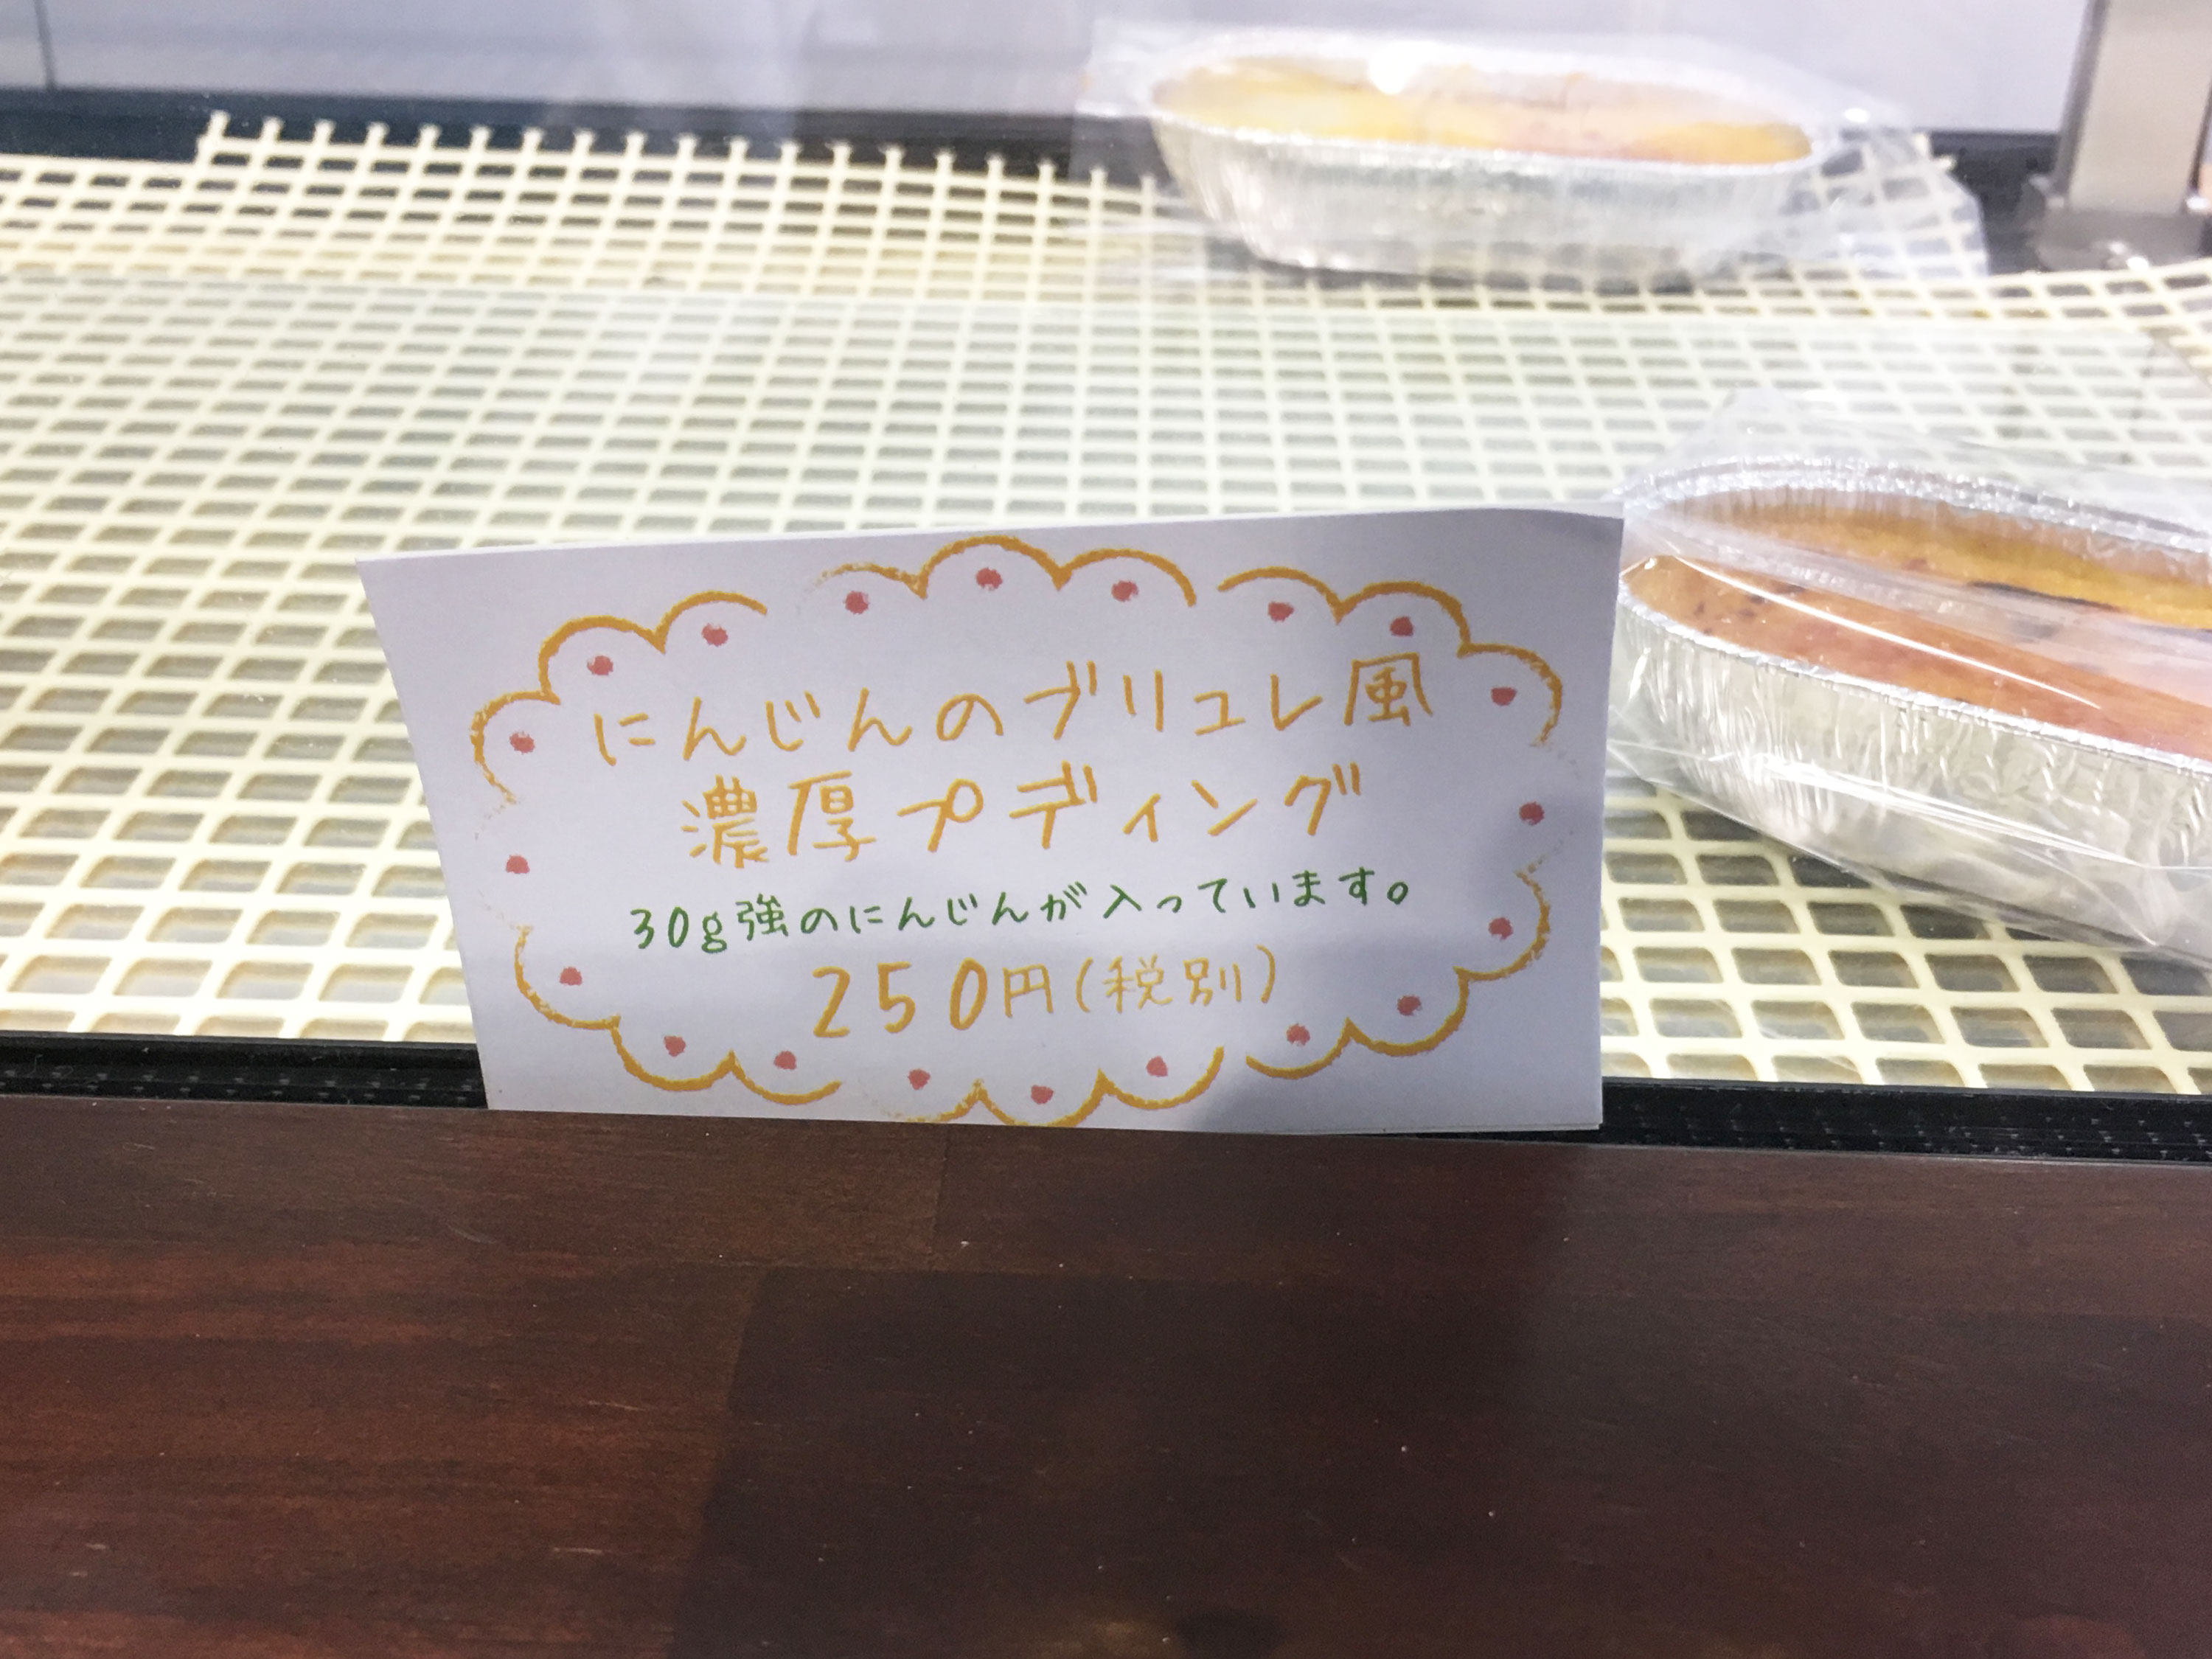 にんじんのブリュレ風
濃厚プディング
30g強のにんじんが入っています。
250円(税別)